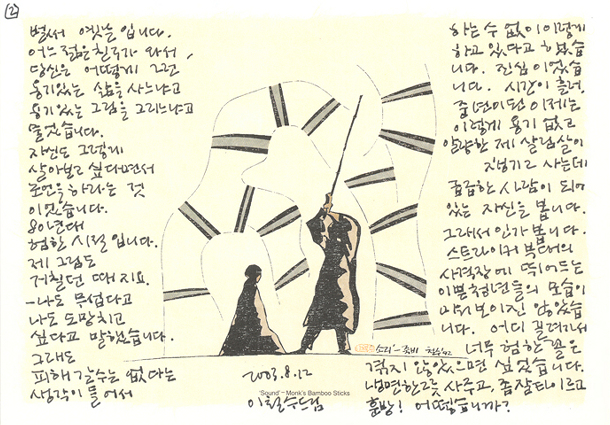 ②
벌써 옛날입니다.
어느 젊은 친구가 와서,
당신은 어떻게 그런
용기있는 삶을 사느냐고
용기있는 그림을 그리느냐고
물었습니다.
자신도 그렇게
살아보고 싶다면서
조언을 하라는 것
이었습니다.
80년대
험한 시절입니다.
제 그림도
거칠던 때지요.
-나도 무섭다고
나도 도망치고
싶다고 말했습니다.
그래도
피해갈수는 없다는
생각이 들어서
하는 수 없이 이렇게
하고 있다고 했습
니다. 진심이었습
니다. 시간이 흘러,
중년이 된 이제는
이렇게 용기 없고
알량한 제 살림살이
지키고 사는데
급급한 사람이 되어
있는 자신을 봅니다.
그래서인가 봅니다.
스트라이커 부대의
사격장에 뛰어드는
이쁜 청년들의 모습이
낯설어 보이진 않았습
니다. 어디 끌려가서
너무 험한 꼴은
겪지 않았으면 싶었습니다.
냉면한그릇 사주고, 좀 잘 타이르고
훈방! 어떻습니까?
소리-죽비 철수'02
2003.8.12
'Sound' – Monk's Bamboo Sticks
이철수드림